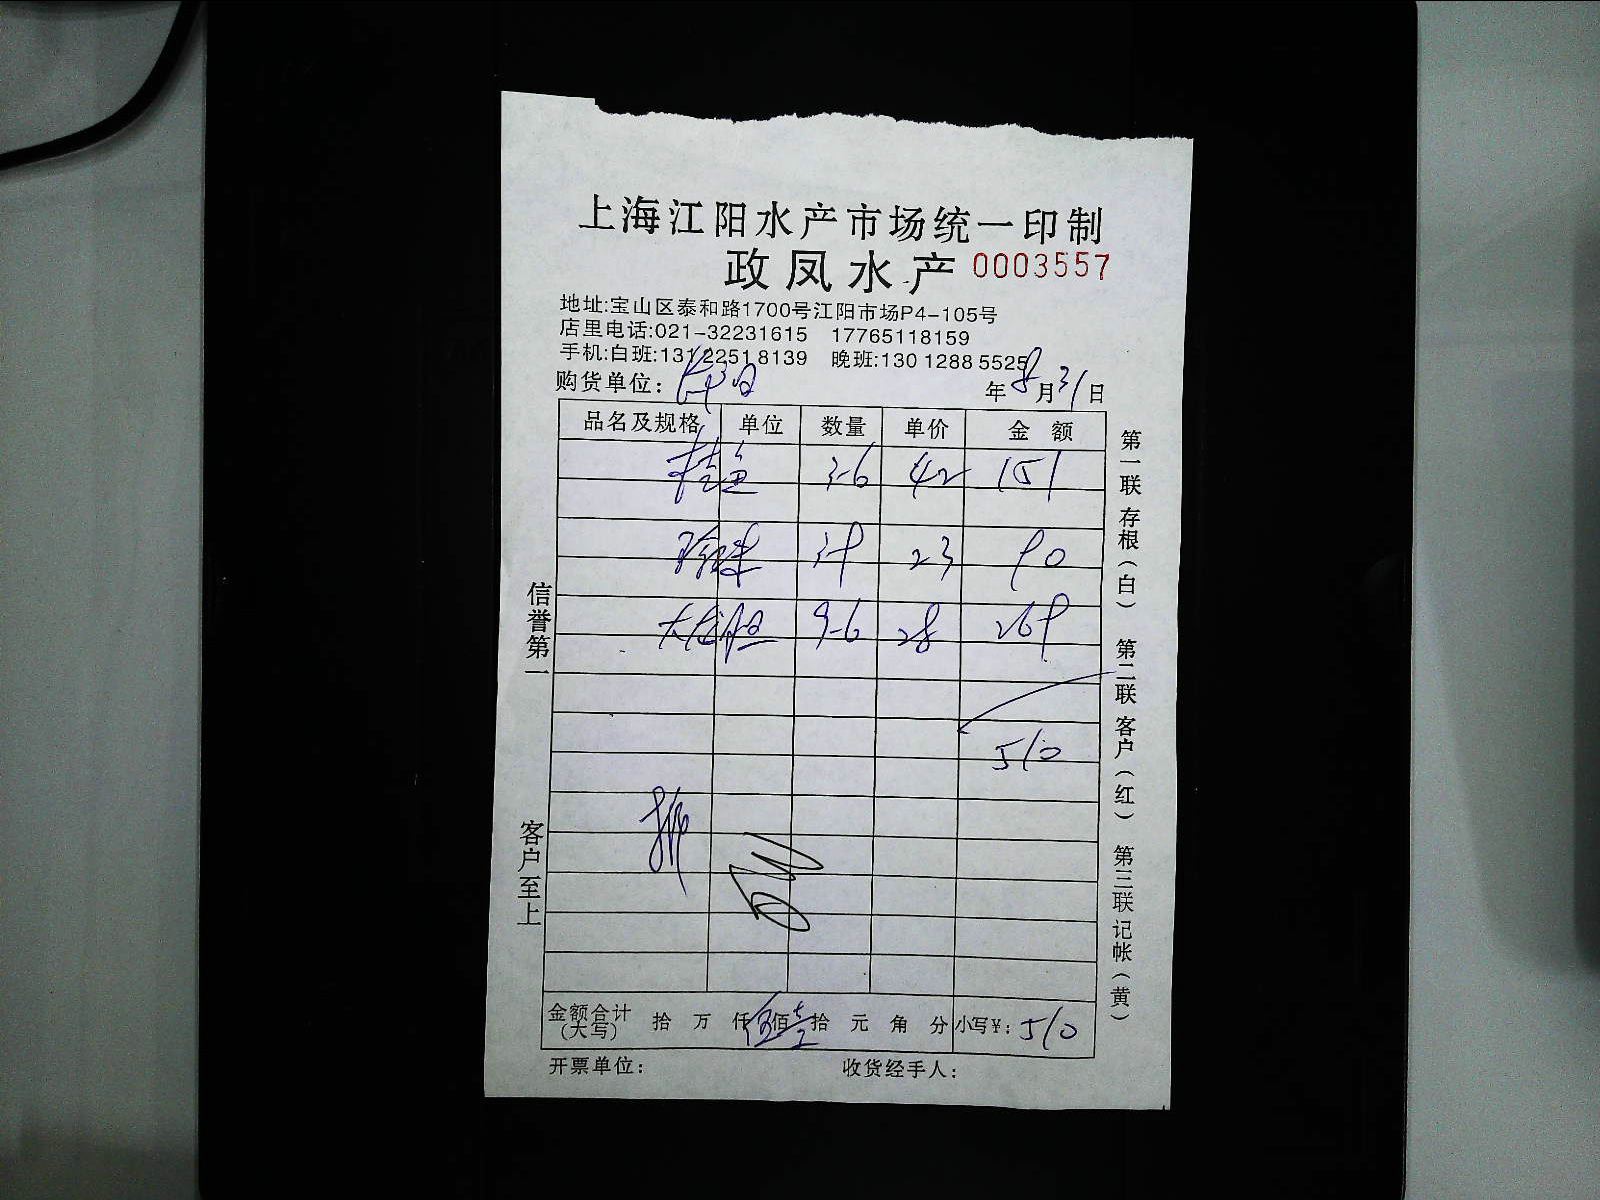 上海江阳水产市场统一印制
政凤水产 0003557
地址:宝山区泰和路1700号江阳市场P4-105号
店里电话:021-32231615 17765118159
手机:白班:131 2251 8139 晚班:130 1288 5525
购货单位: 年8月31日
品名及规格 单位 数量 单价 金额
桂鱼 3-6 42 151
3-9 23 90
大龙 9-6 28 269
510
金额合计(大写) 拾 万 仟伍佰壹拾 元 角 分 小写¥: 510
开票单位: 收货经手人:
信誉第一
客户至上
第一联 存根(白) 第二联 客户(红) 第三联 记帐(黄)